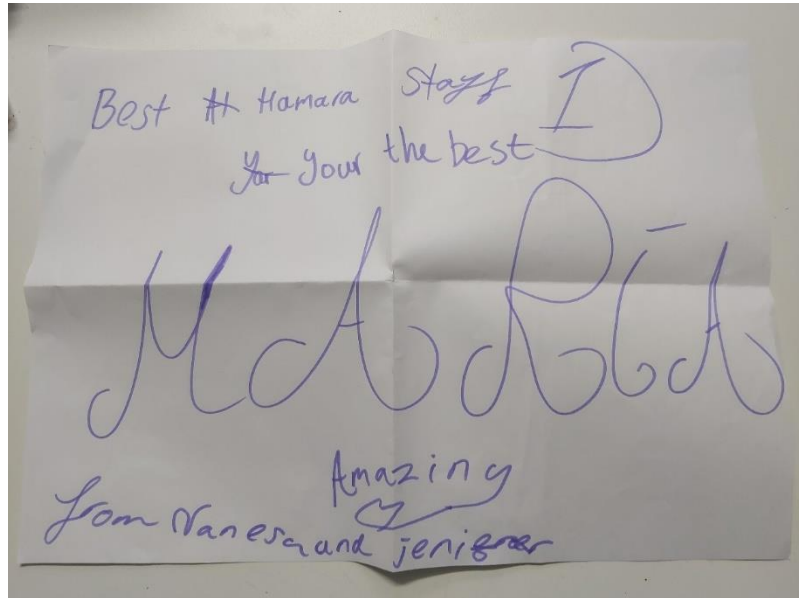 Best Hamara Staff
Your the best
MARÍA
Amazing
from Vanesa and jenifer